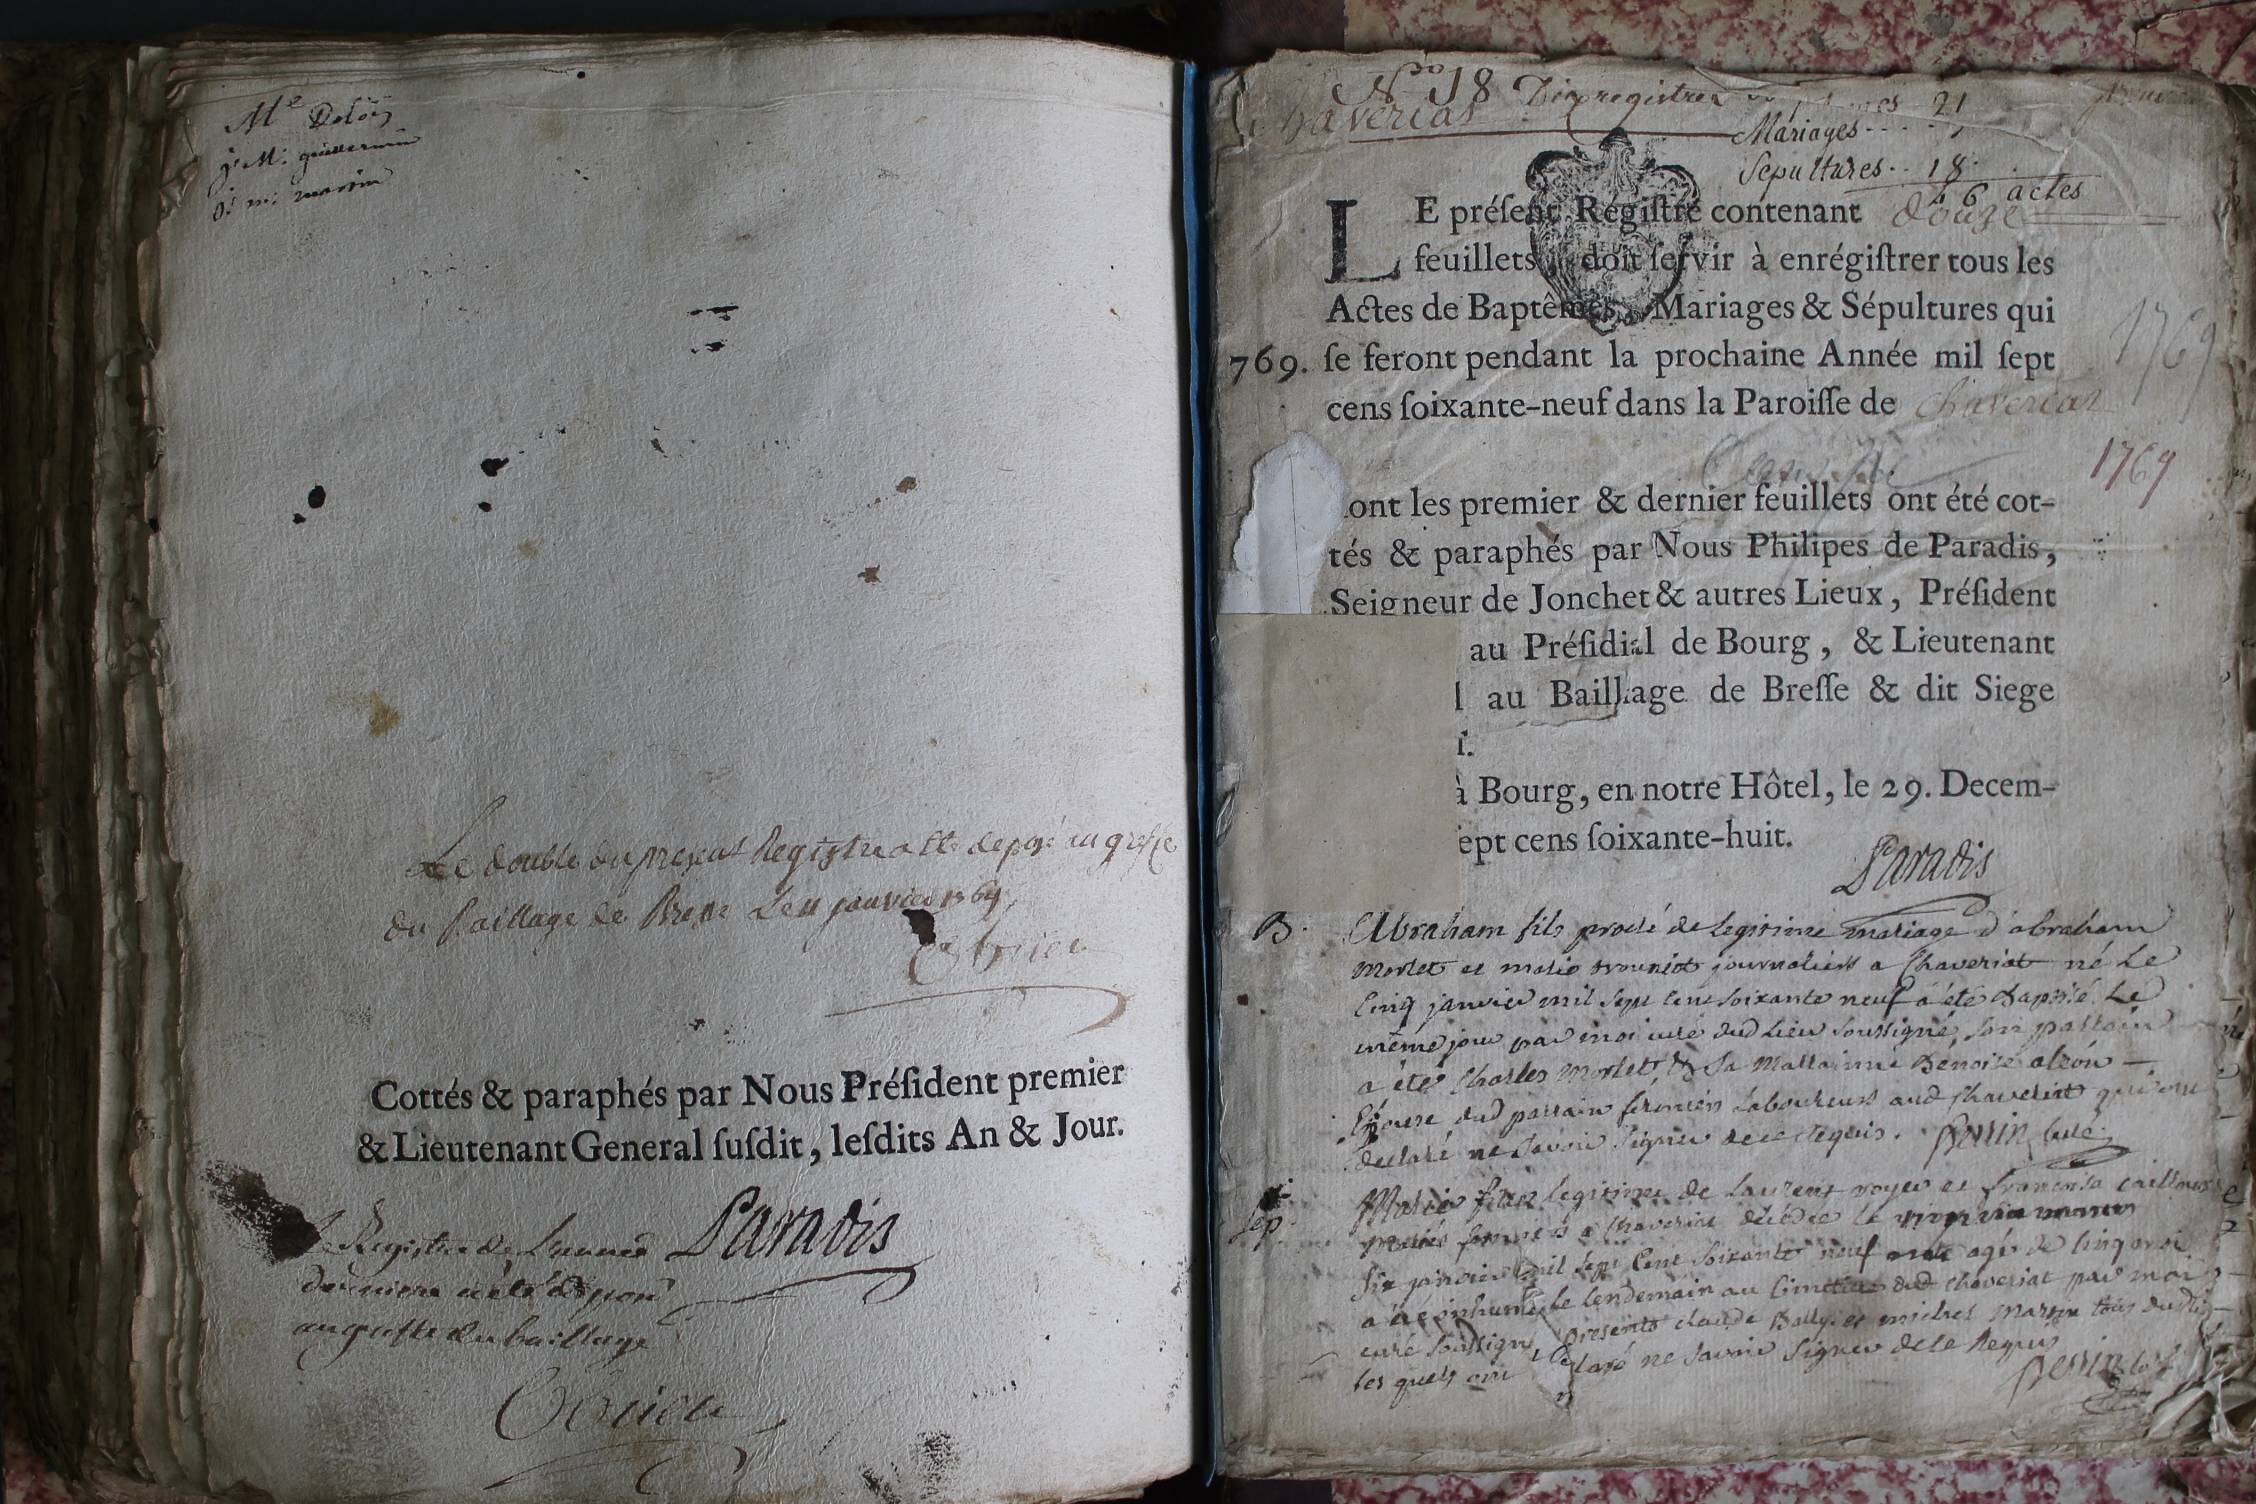 Me
Le double du present Registre a esté deposé au greffe
du Baillage de Bresse Le 11 janvier 1769
Cottés & paraphés par Nous Préſident premier
& Lieutenant General ſuſdit, leſdits An & Jour.
Paradis
Le Registre de L'année
derniere a été déposé
au greffe du baillage
No 18 Dixregistres
Chaveriat
21
Mariages
Sepultures 18
46 actes
LE préſent Régiſtre contenant douze
feuillets, doit ſervir à enrégiſtrer tous les
Actes de Baptêmes, Mariages & Sépultures qui
769. ſe feront pendant la prochaine Année mil ſept
1769
cens ſoixante-neuf dans la Paroiſſe de Chaveriat
1769
ont les premier & dernier feuillets ont été cot-
tés & paraphés par Nous Philipes de Paradis,
Seigneur de Jonchet & autres Lieux, Préſident
au Préſidial de Bourg, & Lieutenant
l au Baillage de Breſſe & dit Siege
l.
à Bourg, en notre Hôtel, le 29. Decem-
ept cens ſoixante-huit.
Paradis
B. Abraham fils procréé de legitime mariage d'abraham
Morlet et marie journaliers a Chaveriat né Le
Cinq janvier mil sept cent soixante neuf a été Baptisé Le
même jour par moi curé dud Lieu soussigné, son parrain
a été Charles Morlet & sa Marrainne Benoite
Epouse dud parrain fermiers Laboureurs aud Chaveriat qui ont
declaré ne savoir signer de ce Requis. Perrin Curé
Sep. Marie fille legitime de Laurent royer et francoise
mariés fermiers a Chaveriat décédée le
six janvier mil sept cent soixante neuf agée de Cinq mois
a été inhumé Le Lendemain au Cimetiere dud Chaveriat par moi
curé soussigné, presents claude Bally et michel Martin tous dud lieu
les quels ont declaré ne savoir signer de ce Requis
Perrin Curé